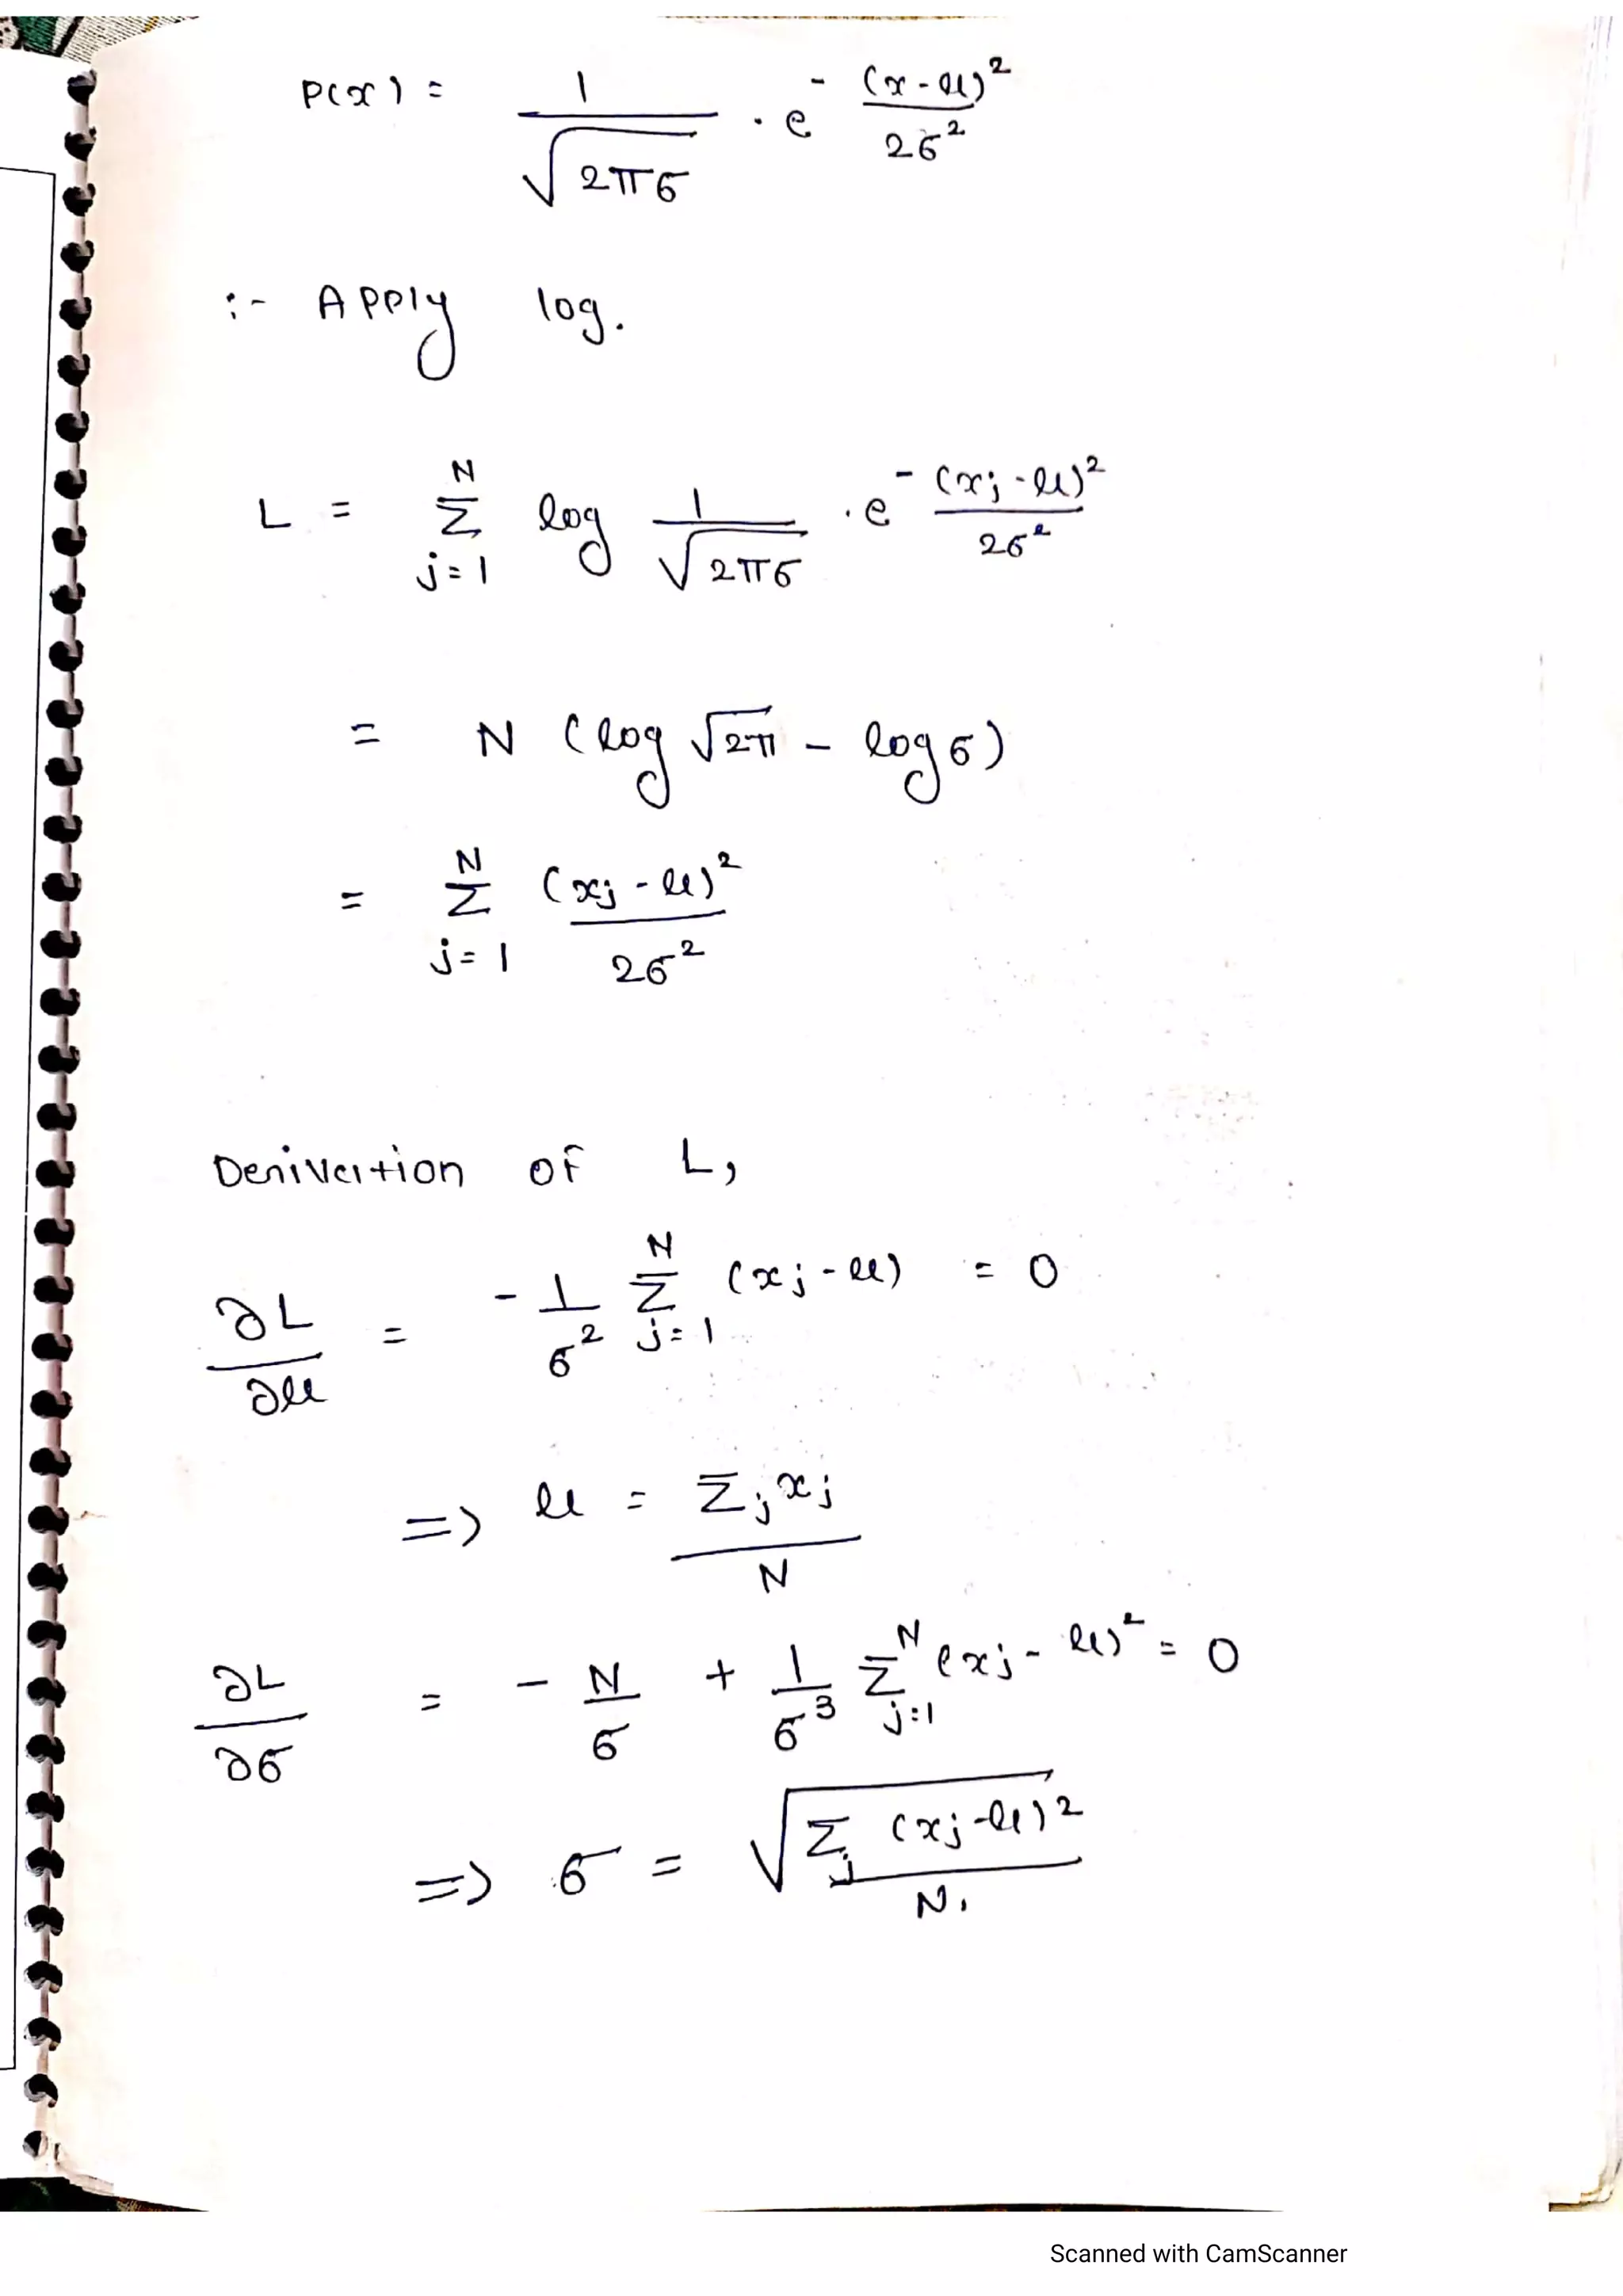 P(x) = 1 / √(2πσ) · e^ - (x - μ)² / 2σ²
:- Apply log.
L = Σ_{j=1}^{N} log 1 / √(2πσ) · e^ - (xj - μ)² / 2σ²
= N (log √2π - log σ)
= Σ_{j=1}^{N} (xj - μ)² / 2σ²
Derivation of L,
∂L / ∂μ = - 1 / σ² Σ_{j=1}^{N} (xj - μ) = 0
=> μ = Σj xj / N
∂L / ∂σ = - N / σ + 1 / σ³ Σ_{j=1}^{N} (xj - μ)² = 0
=> σ = √(Σj (xj - μ)² / N.)
Scanned with CamScanner